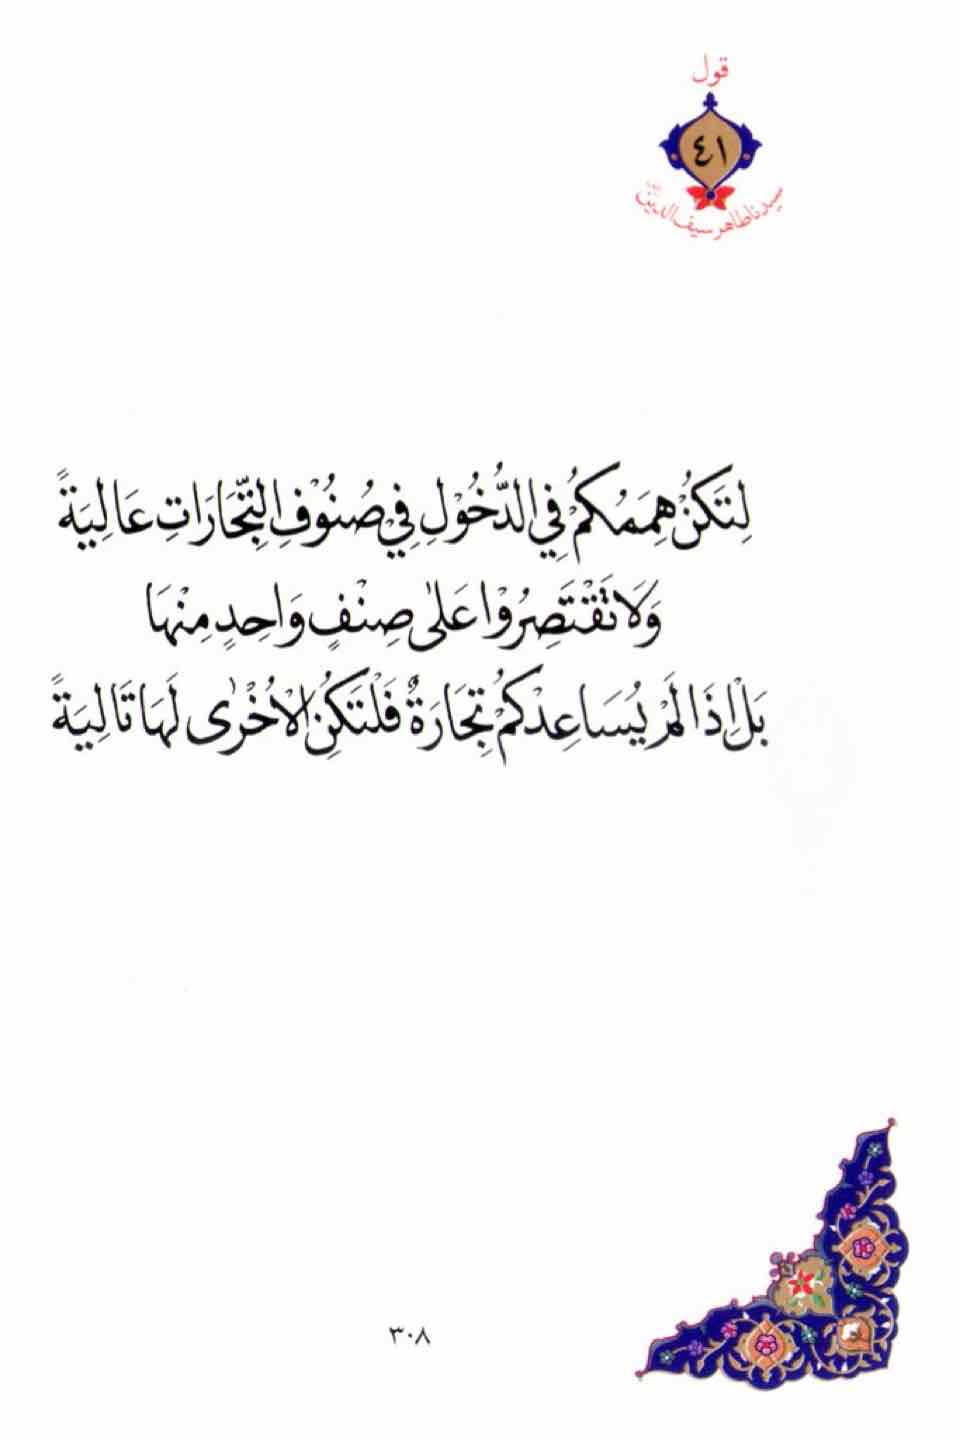 قول
٤١
سيدنا طاهر سيف الدين
لِتَكُنْ هِمَمُكُمْ فِي الدُّخُوْلِ فِيْ صُنُوْفِ التِّجَارَاتِ عَالِيَةً
وَلَا تَقْتَصِرُوْا عَلٰى صِنْفٍ وَاحِدٍ مِنْهَا
بَلْ اِذَا لَمْ يُسَاعِدْكُمْ تِجَارَةٌ فَلْتَكُنِ الْاُخْرٰى لَهَا تَالِيَةً
٣٠٨